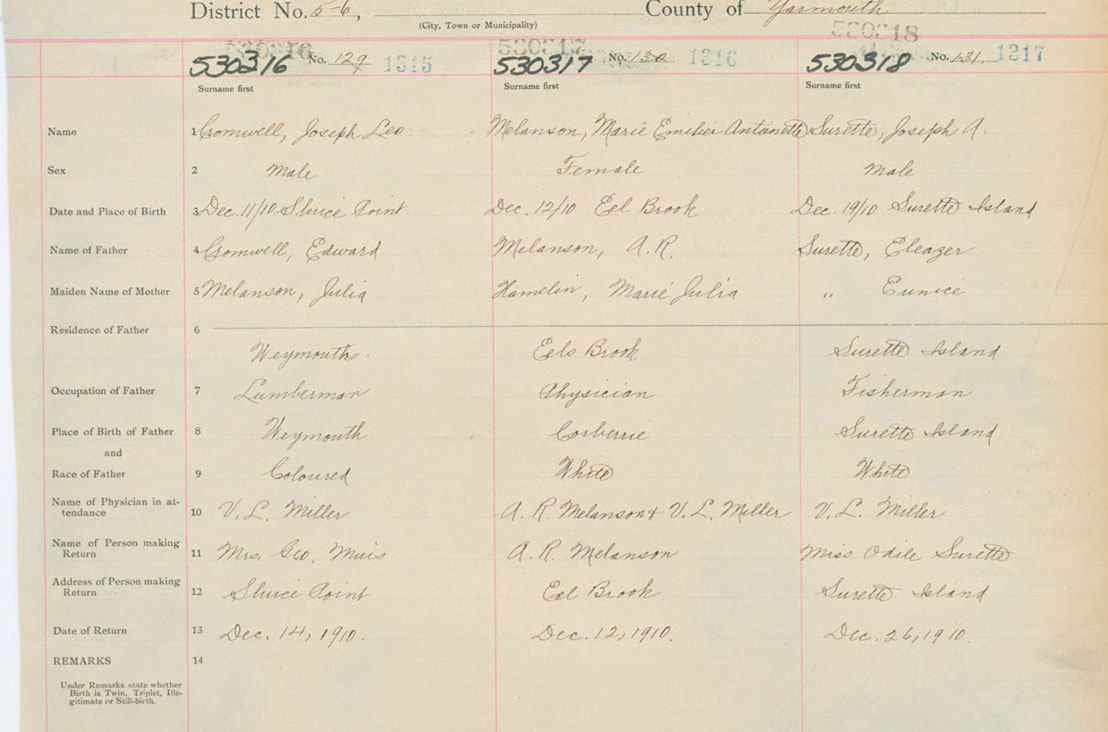 District No. 5-6, County of Yarmouth
(City, Town or Municipality)
530316 530317 530318
530316 No. 129 1315 530317 No. 130 1316 530318 No. 131 1317
Surname first Surname first Surname first
Name 1 Cromwell, Joseph Leo Melanson, Marie Emilie Antoinette Surette, Joseph A.
Sex 2 Male Female Male
Date and Place of Birth 3 Dec. 11/10 Sluice Point Dec. 12/10 Eel Brook Dec. 19/10 Surette Island
Name of Father 4 Cromwell, Edward Melanson, A.R. Surette, Eleazer
Maiden Name of Mother 5 Melanson, Julia Hamelin, Marie Julia " Eunice
Residence of Father 6
Weymouth Eels Brook Surette Island
Occupation of Father 7 Lumberman Physician Fisherman
Place of Birth of Father 8 Weymouth Corberrie Surette Island
and
Race of Father 9 Coloured White White
Name of Physician in at-
tendance 10 V. L. Miller A. R. Melanson & V. L. Miller V. L. Miller
Name of Person making
Return 11 Mrs. Geo. Muis A. R. Melanson Miss Odile Surette
Address of Person making
Return 12 Sluice Point Eel Brook Surette Island
Date of Return 13 Dec. 14, 1910. Dec. 12, 1910. Dec. 26, 1910.
REMARKS 14
Under Remarks state whether
Birth is Twin, Triplet, Ille-
gitimate or Still-birth.